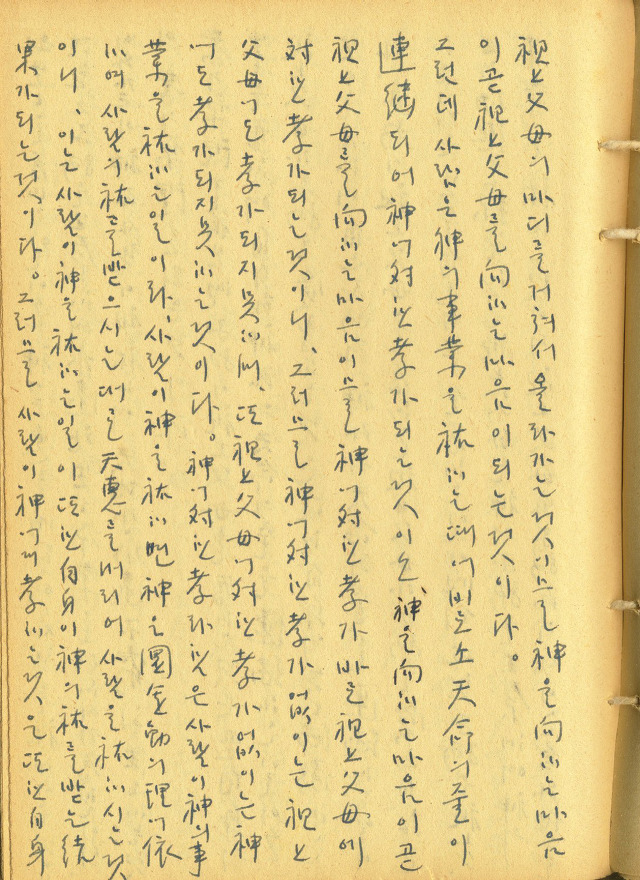 祖上父母의 마디를 거쳐서 올라가는 것이므로 神을 向하는 마음
이 곧 祖上父母를 向하는 마음이 되는 것이다。
그런데 사람은 神의 事業을 祐하는 때에 비로소 天命의 줄이
連繼되어 神에 対한 孝가 되는 것이오、神을 向하는 마음이 곧
祖上父母를 向하는 마음이므로 神에 対한 孝가 바로 祖上父母에
対한 孝가 되는 것이니、그러므로 神에 対한 孝가 없이는 祖上
父母에도 孝가 되지 못하며、또 祖上父母에 対한 孝가 없이는 神
에도 孝가 되지 못하는 것이다。神에 対한 孝라 함은 사람이 神의 事
業을 祐하는 일이라、사람이 神을 祐하면 神은 圜全動의 理에 依
하여 사람의 祐를 받으시는 대로 天惠를 내리어 사람을 祐하시는 것
이니、이는 사람이 神을 祐하는 일이 또한 自身이 神의 祐를 받는 結
果가 되는 것이다。그러므로 사람이 神에게 孝하는 것은 또한 自身